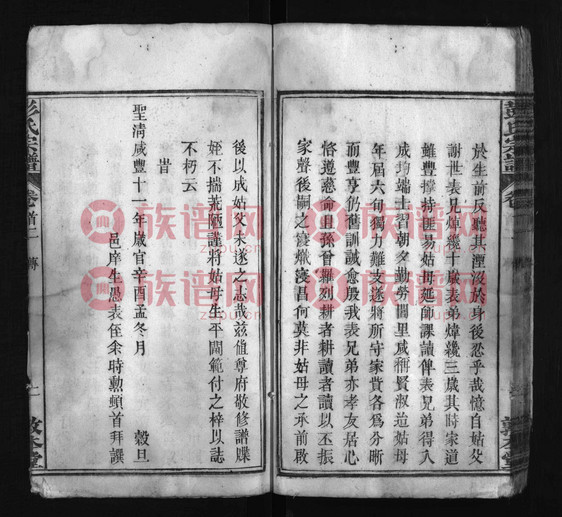 彭氏宗譜
卷首
於生前反聽其湮沒於身後忍乎哉憶自姑父
謝世表兄焯纔十歲表弟煒纔三歲其時家道
雖豐撐持匪易姑母延師課讀俾表兄弟得入
成均端士習朝夕勤勞閭里咸稱賢淑迨姑母
年屆六旬獨力難支遂將所守家貲各為分晰
而豐亨仍舊訓誡愈殷我表兄弟亦孝友居心
恪遵慈命且孫曾羅列耕者耕讀者讀以丕振
家聲後嗣之寖熾寖昌何莫非姑母之承前啟
敦本堂
後以成姑父未遂之志哉茲值尊府敬修譜牒
姪不揣荒陋謹將姑母生平閫範付之梓以誌
不朽云
旹
聖清咸豐十一年歲官辛酉孟冬月
穀旦
邑庠生愚表侄余時勳頓首拜譔
彭氏宗譜
卷首二
傳
敦本堂
族谱网
zupu.cn